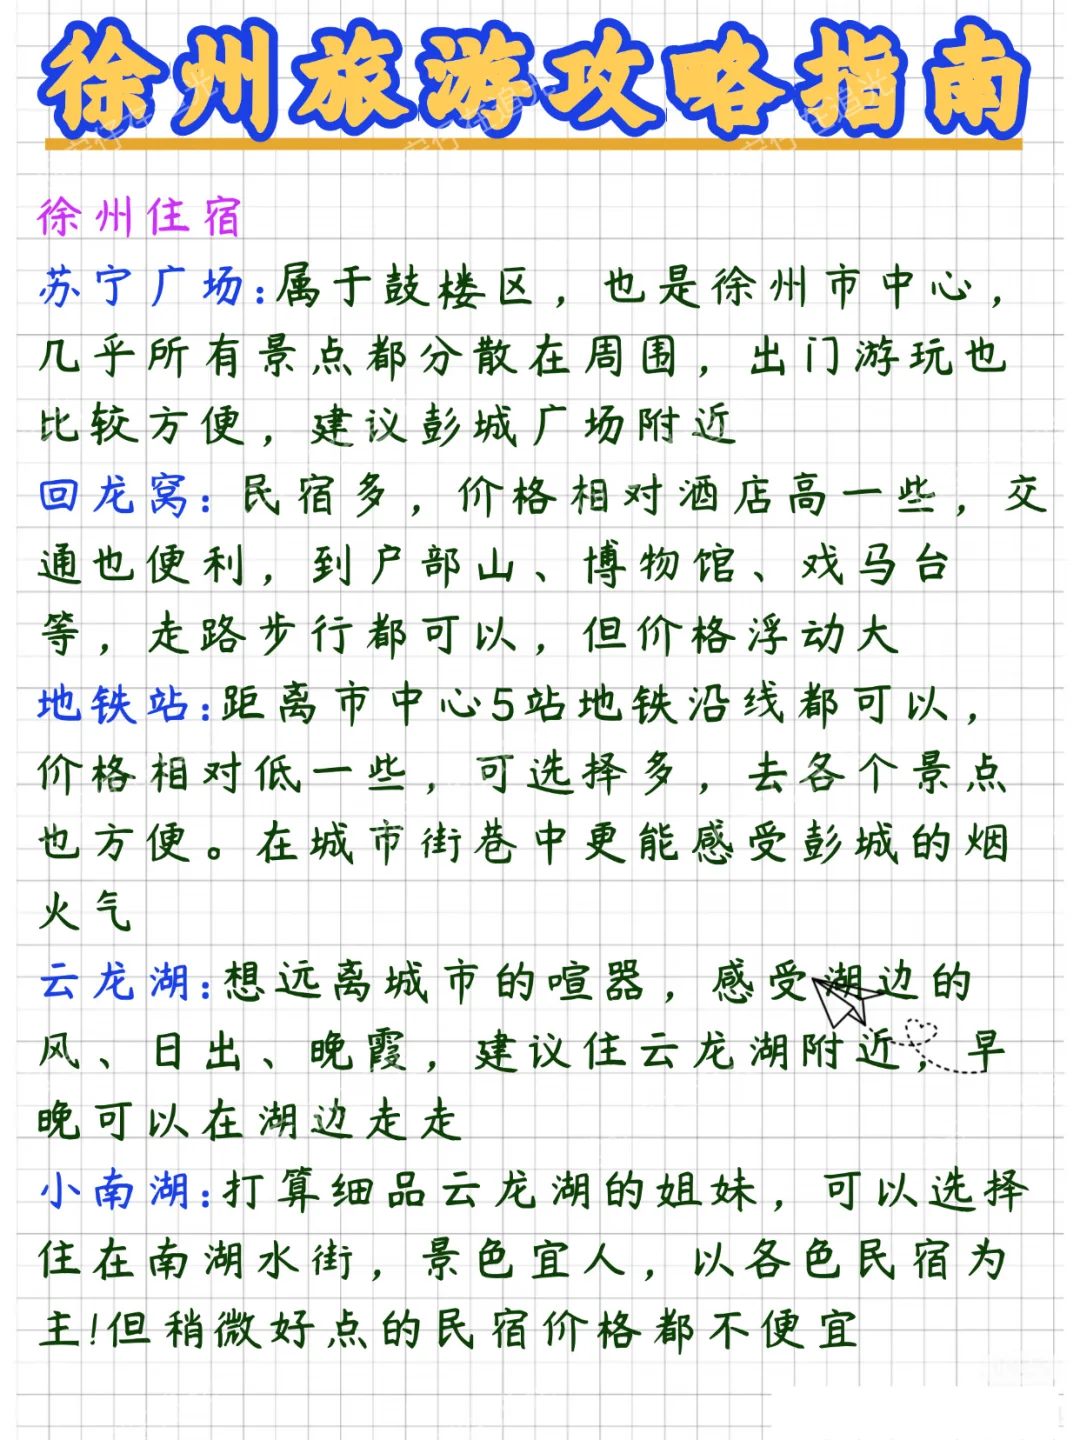 徐州旅游攻略指南
徐州住宿
苏宁广场:属于鼓楼区，也是徐州市中心，
几乎所有景点都分散在周围，出门游玩也
比较方便，建议彭城广场附近
回龙窝:民宿多，价格相对酒店高一些，交
通也便利，到户部山、博物馆、戏马台
等，走路步行都可以，但价格浮动大
地铁站:距离市中心5站地铁沿线都可以，
价格相对低一些，可选择多，去各个景点
也方便。在城市街巷中更能感受彭城的烟
火气
云龙湖:想远离城市的喧嚣，感受湖边的
风、日出、晚霞，建议住云龙湖附近，早
晚可以在湖边走走
小南湖:打算细品云龙湖的姐妹，可以选择
住在南湖水街，景色宜人，以各色民宿为
主!但稍微好点的民宿价格都不便宜